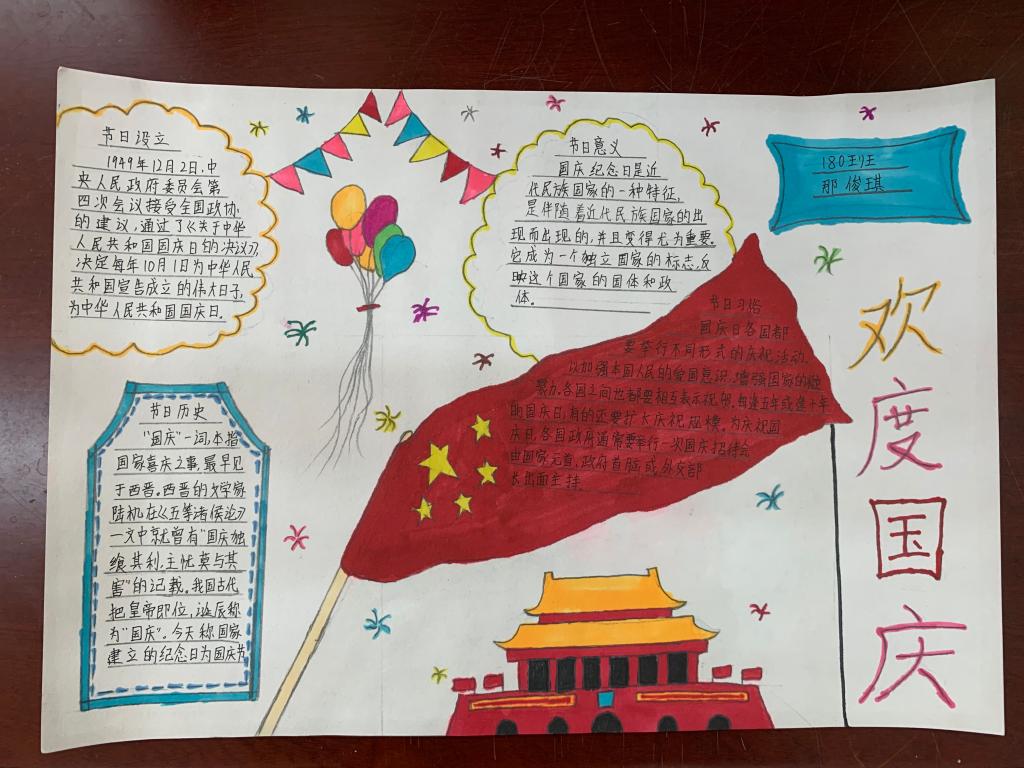 节日设立
1949年12月2日,中
央人民政府委员会第
四次会议接受全国政协
的建议,通过了《关于中华
人民共和国国庆日的决议》,
决定每年10月1日为中华人民
共和国宣告成立的伟大日子,
为中华人民共和国国庆日。
节日意义
国庆纪念日是近
代民族国家的一种特征,
是伴随着近代民族国家的出
现而出现的,并且变得尤为重要。
它成为一个独立国家的标志,反
映这个国家的国体和政
体。
180班
那俊琪
节日习俗
国庆日各国都
要举行不同形式的庆祝活动,
以加强本国人民的爱国意识,增强国家的凝
聚力。各国之间也都要相互表示祝贺。每逢五年或逢十年
的国庆日,有的还要扩大庆祝规模。为庆祝国
庆日,各国政府通常要举行一次国庆招待会
由国家元首,政府首脑或外交部
长出面主持。
节日历史
“国庆”一词,本指
国家喜庆之事,最早见
于西晋。西晋的文学家
陆机在《五等诸侯论》
一文中就曾有“国庆独
飨其利,主忧莫与其
害”的记载。我国古代
把皇帝即位,诞辰称
为“国庆”。今天称国家
建立的纪念日为国庆节
欢
度
国
庆